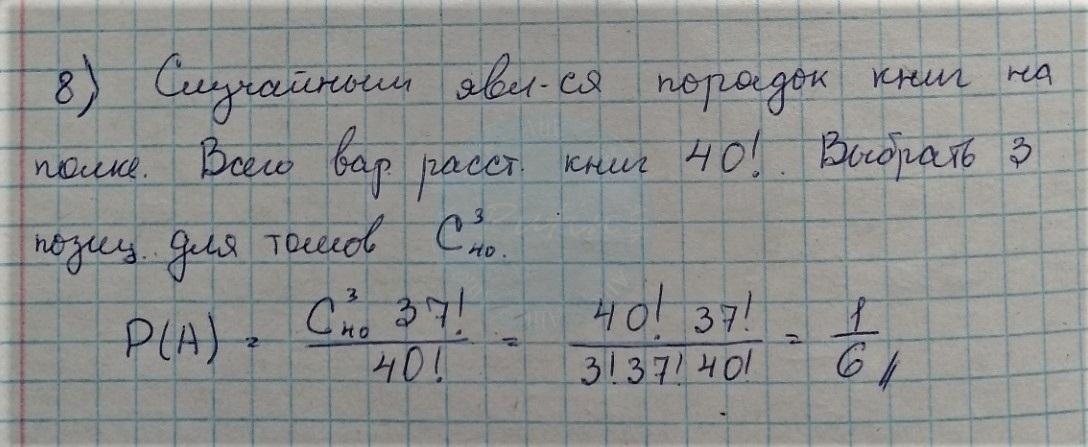 8) Случайным явл-ся порядок книг на
полке. Всего вар. расст. книг 40!. Выбрать 3
позиц. для томов C³₄₀.
P(A) = C³₄₀ 37! / 40! = 40! 37! / 3! 37! 40! = 1/6 //